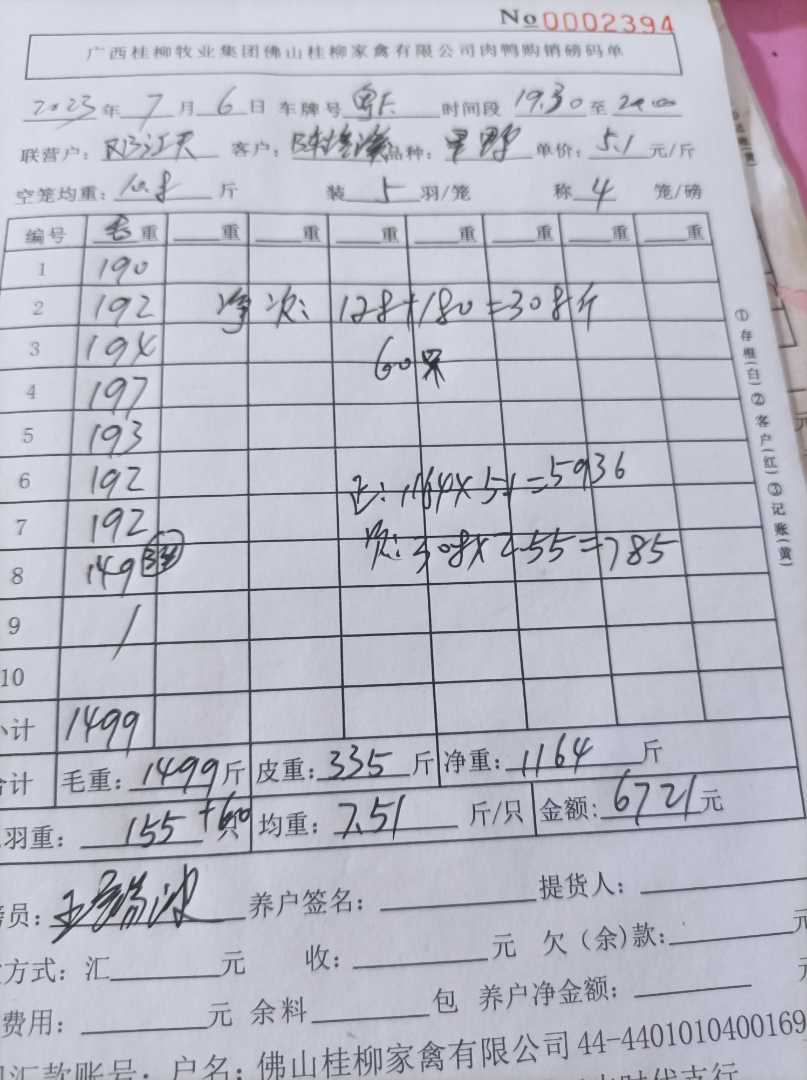 No 0002394
广西桂柳牧业集团佛山桂柳家禽有限公司肉鸭购销磅码单
2023年 7 月 6 日 车牌号 时间段 19.30 至 20.00
联营户: 客户: 品种: 单价: 5.1 元/斤
空笼均重: 10.8 斤 装 5 羽/笼 称 4 笼/磅
编号 毛重 重 重 重 重 重 重 重
1 190
2 192 净次: 128+180=308斤
3 194 60只
4 197
5 193
6 192 正: 1164×5.1=5936
7 192
8 149 次: 308×2.55=785
9 /
10
小计 1499
合计 毛重: 1499 斤 皮重: 335 斤 净重: 1164 斤
羽重: 155+60 只 均重: 7.51 斤/只 金额: 6721 元
员: 养户签名: 提货人:
方式: 汇 元 收: 元 欠(余)款: 元
费用: 元 余料 包 养户净金额: 元
汇款账号: 户名: 佛山桂柳家禽有限公司 44-4401010400169
时代支行
①存根(白)②客户(红)③记账(黄)